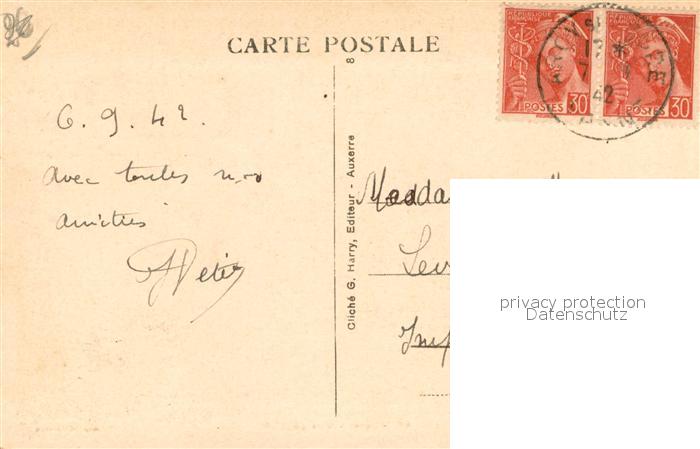 CARTE POSTALE
8
RÉPUBLIQUE FRANÇAISE
POSTES 30
RÉPUBLIQUE FRANÇAISE
POSTES 30
42
6.9.42.
avec toutes nos
amitiés
Cliché G. Harry, Editeur - Auxerre
Madda
Lev
Imp
privacy protection
Datenschutz